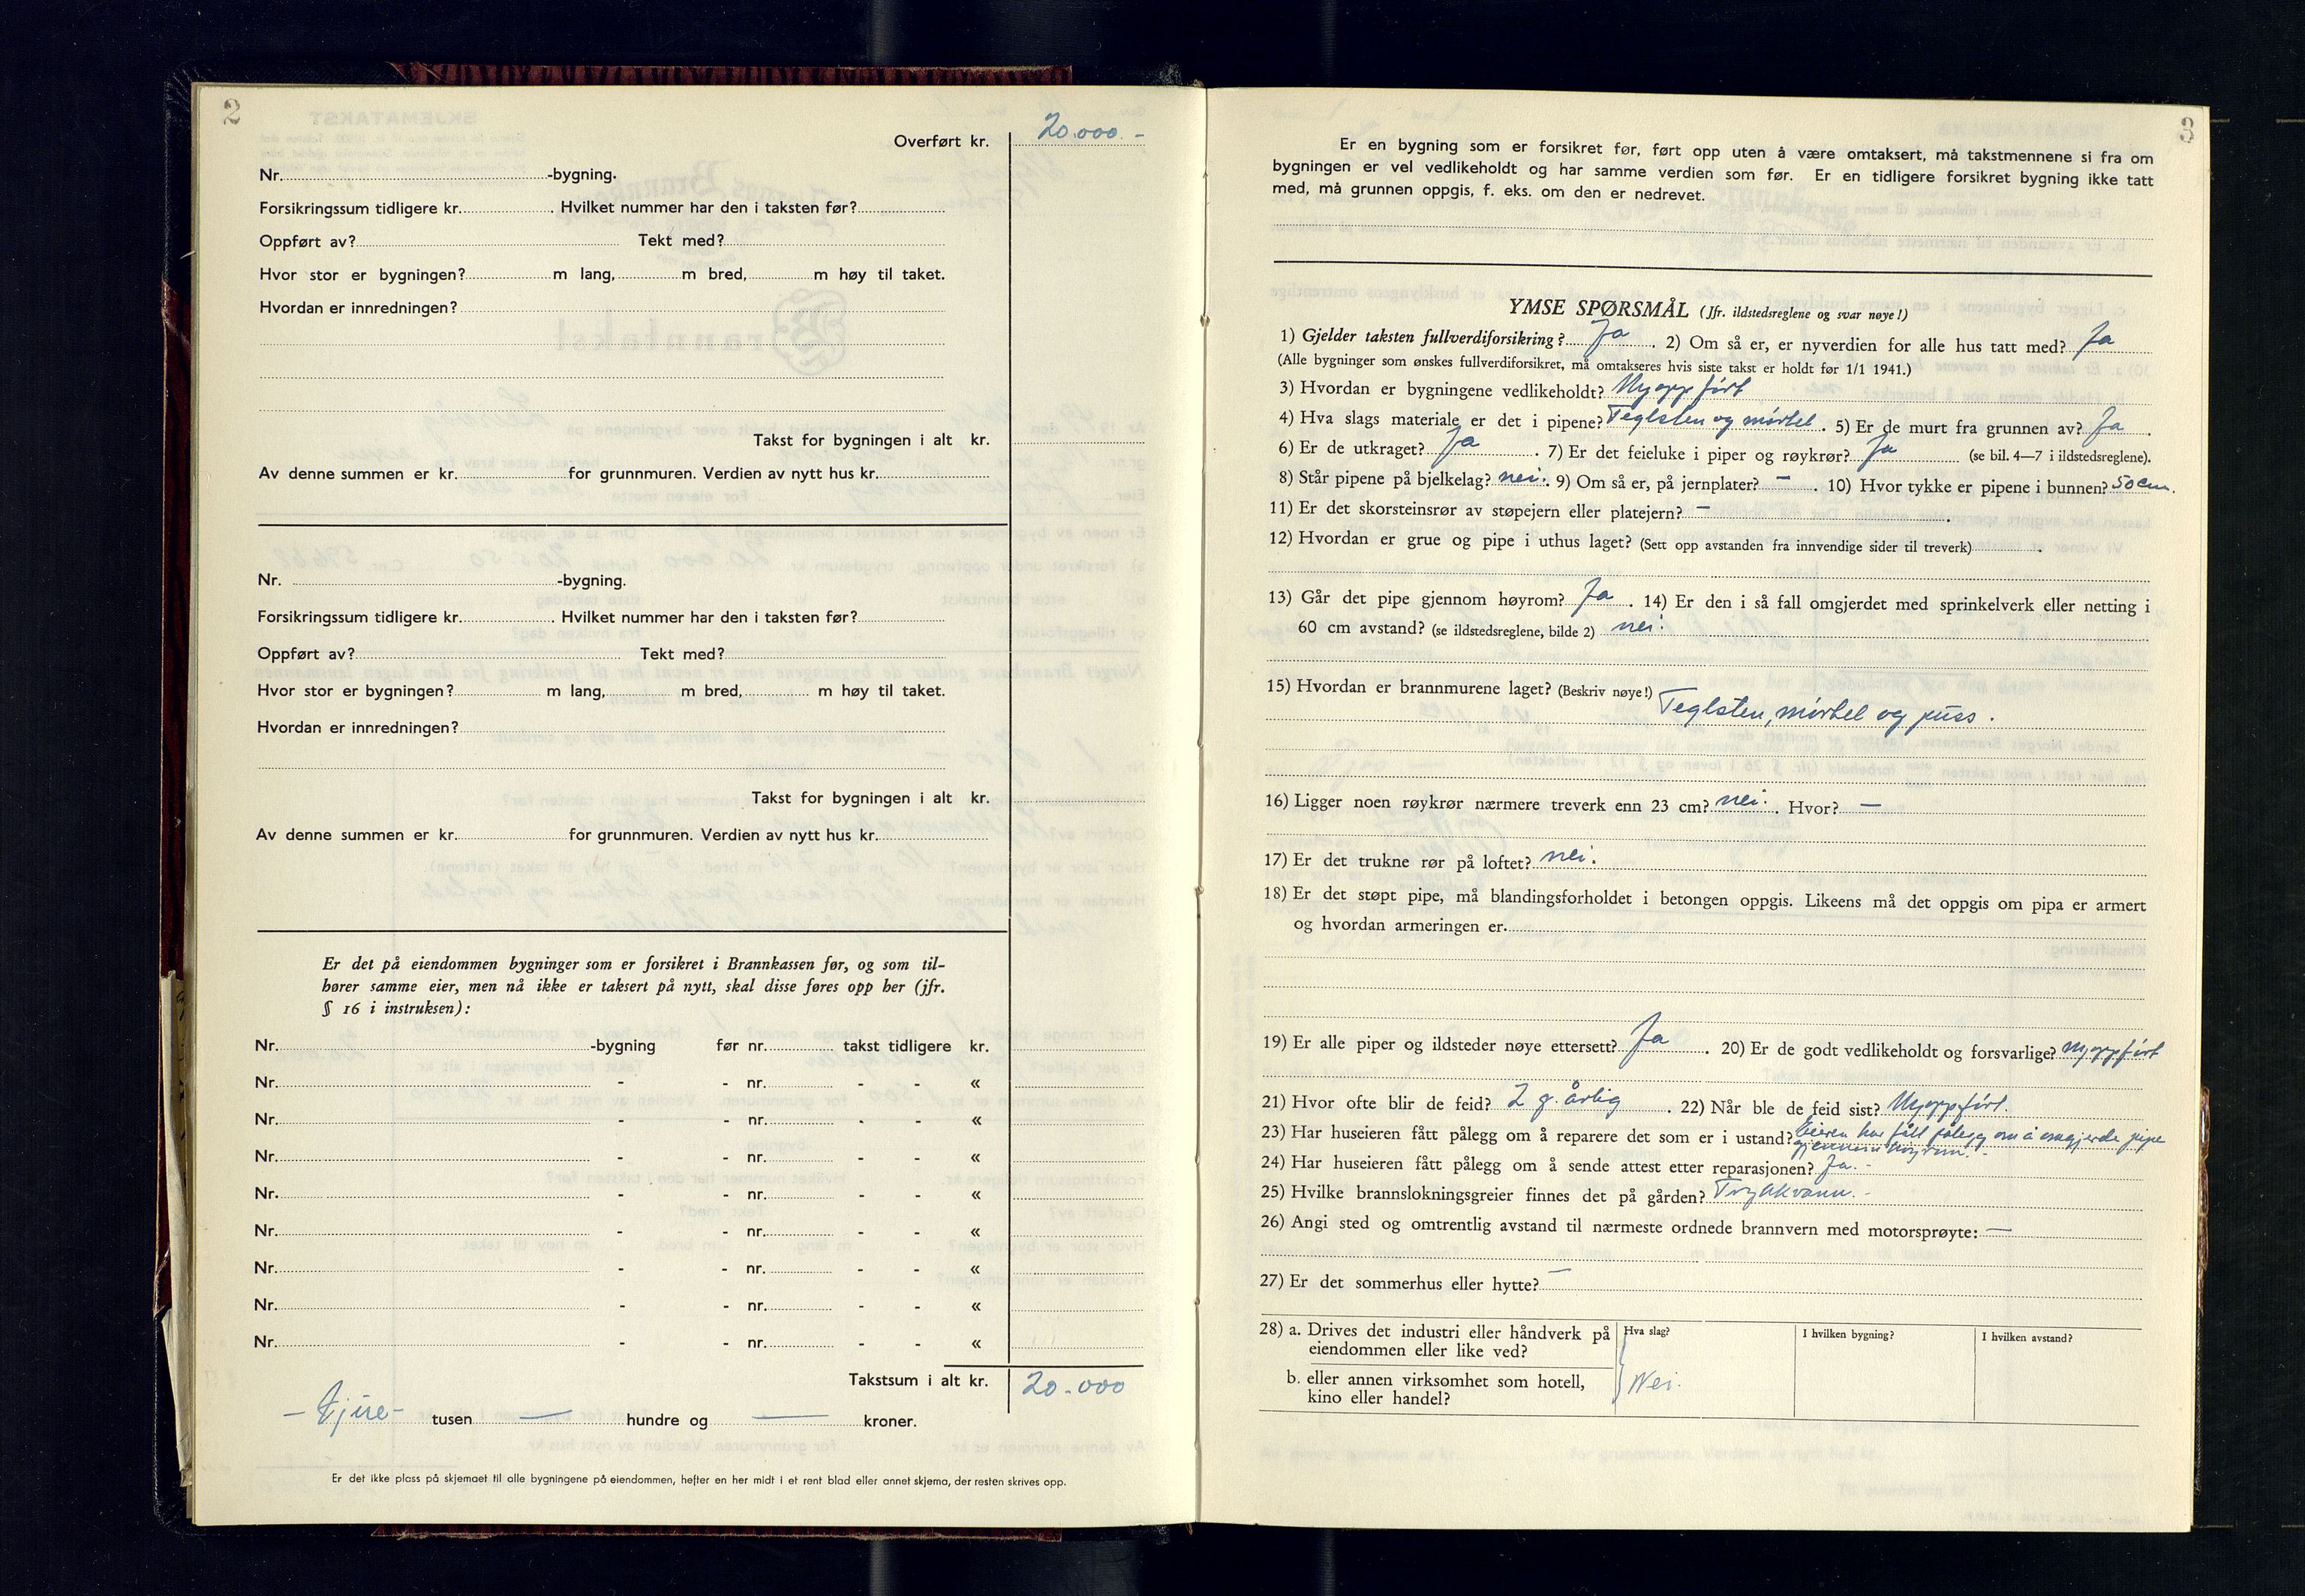 2
Overført kr. 20.000.-
Nr. -bygning.
Forsikringssum tidligere kr. . Hvilket nummer har den i taksten før?
Oppført av? Tekt med?
Hvor stor er bygningen? m lang, m bred, m høy til taket.
Hvordan er innredningen?
Takst for bygningen i alt kr.
Av denne summen er kr. for grunnmuren. Verdien av nytt hus kr.
Nr. -bygning.
Forsikringssum tidligere kr. . Hvilket nummer har den i taksten før?
Oppført av? Tekt med?
Hvor stor er bygningen? m lang, m bred, m høy til taket.
Hvordan er innredningen?
Takst for bygningen i alt kr.
Av denne summen er kr. for grunnmuren. Verdien av nytt hus kr.
Er det på eiendommen bygninger som er forsikret i Brannkassen før, og som til-
hører samme eier, men nå ikke er taksert på nytt, skal disse føres opp her (jfr.
§ 16 i instruksen):
Nr. -bygning før nr. takst tidligere kr.
Nr. - - nr. - - «
Nr. - - nr. - - «
Nr. - - nr. - - «
Nr. - - nr. - - «
Nr. - - nr. - - «
Nr. - - nr. - - «
Nr. - - nr. - - «
Nr. - - nr. - - «
Takstsum i alt kr. 20.000
- tjue - tusen — hundre og — kroner.
Er det ikke plass på skjemaet til alle bygningene på eiendommen, hefter en her midt i et rent blad eller annet skjema, der resten skrives opp.
3
Er en bygning som er forsikret før, ført opp uten å være omtaksert, må takstmennene si fra om
bygningen er vel vedlikeholdt og har samme verdien som før. Er en tidligere forsikret bygning ikke tatt
med, må grunnen oppgis, f. eks. om den er nedrevet.
YMSE SPØRSMÅL (Jfr. ildstedsreglene og svar nøye!)
1) Gjelder taksten fullverdiforsikring? Ja . 2) Om så er, er nyverdien for alle hus tatt med? Ja
(Alle bygninger som ønskes fullverdiforsikret, må omtakseres hvis siste takst er holdt før 1/1 1941.)
3) Hvordan er bygningene vedlikeholdt? Nyoppført
4) Hva slags materiale er det i pipene? Teglsten og mørtel . 5) Er de murt fra grunnen av? Ja .
6) Er de utkraget? Ja . 7) Er det feieluke i piper og røykrør? Ja (se bil. 4—7 i ildstedsreglene).
8) Står pipene på bjelkelag? nei. . 9) Om så er, på jernplater? — . 10) Hvor tykke er pipene i bunnen? 50 cm.
11) Er det skorsteinsrør av støpejern eller platejern? — .
12) Hvordan er grue og pipe i uthus laget? (Sett opp avstanden fra innvendige sider til treverk) .
13) Går det pipe gjennom høyrom? Ja . 14) Er den i så fall omgjerdet med sprinkelverk eller netting i
60 cm avstand? (se ildstedsreglene, bilde 2) nei.
15) Hvordan er brannmurene laget? (Beskriv nøye!)
Teglsten, mørtel og puss.
16) Ligger noen røykrør nærmere treverk enn 23 cm? nei. . Hvor? —
17) Er det trukne rør på loftet? nei.
18) Er det støpt pipe, må blandingsforholdet i betongen oppgis. Likeens må det oppgis om pipa er armert
og hvordan armeringen er.
19) Er alle piper og ildsteder nøye ettersett? Ja . 20) Er de godt vedlikeholdt og forsvarlige? Nyoppført
21) Hvor ofte blir de feid? 2 g. årlig . 22) Når ble de feid sist? Nyoppført.
23) Har huseieren fått pålegg om å reparere det som er i ustand? Eieren har fått pålegg om å omgjerde pipe
gjennom høyrom. -
24) Har huseieren fått pålegg om å sende attest etter reparasjonen? Ja. -
25) Hvilke brannslokningsgreier finnes det på gården? Trykkvann. -
26) Angi sted og omtrentlig avstand til nærmeste ordnede brannvern med motorsprøyte: —
27) Er det sommerhus eller hytte? —
28) a. Drives det industri eller håndverk på Hva slag? I hvilken bygning? I hvilken avstand?
eiendommen eller like ved?
b. eller annen virksomhet som hotell, Nei.
kino eller handel?